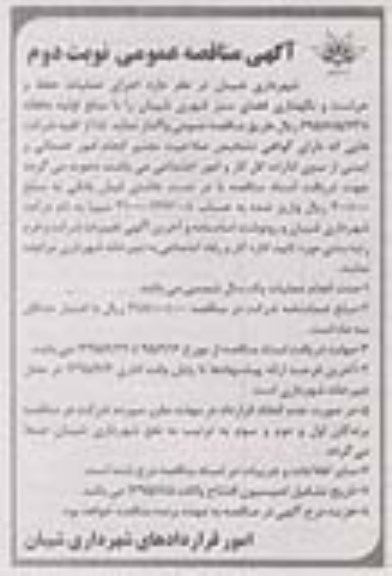 آگهی مناقصه عمومی نوبت دوم
شهرداری شیبان در نظر دارد اجرای عملیات حفظ و
حراست و نگهداری فضای سبز شهری شیبان را با مبلغ اولیه ماهانه
ریال طریق مناقصه عمومی واگذار نماید. لذا از کلیه شرکت
هایی که دارای گواهی تشخیص صلاحیت معتبر انجام امور خدماتی و
ایمنی از سوی ادارات کل کار و امور اجتماعی می باشند دعوت می گردد
جهت دریافت اسناد مناقصه با در دست داشتن فیش بانکی به مبلغ
ریال واریز شده به حساب شیبا به نام درآمد
شهرداری شیبان و رونوشت اساسنامه و آخرین آگهی تغییرات شرکت و فرم
رتبه بندی مورد تایید اداره کار و رفاه اجتماعی به دبیرخانه شهرداری مراجعه
نمایند.
۱-مدت انجام عملیات یک سال شمسی می باشد.
۲-مبلغ ضمانتنامه شرکت در مناقصه ریال با اعتبار حداقل
سه ماه است.
۳-مهلت دریافت اسناد مناقصه از مورخ تا می باشد.
۴-آخرین فرصت ارائه پیشنهادها تا پایان وقت اداری در محل
دبیرخانه شهرداری است.
۵-در صورت عدم انعقاد قرارداد در مهلت مقرر سپرده شرکت در مناقصه
برندگان اول و دوم و سوم به ترتیب به نفع شهرداری شیبان ضبط
می گردد.
۶-سایر اطلاعات و جزییات در اسناد مناقصه درج شده است.
۷-تاریخ تشکیل کمیسیون افتتاح پاکات می باشد.
۸-هزینه درج آگهی در مناقصه به عهده برنده مناقصه خواهد بود.
امور قراردادهای شهرداری شیبان